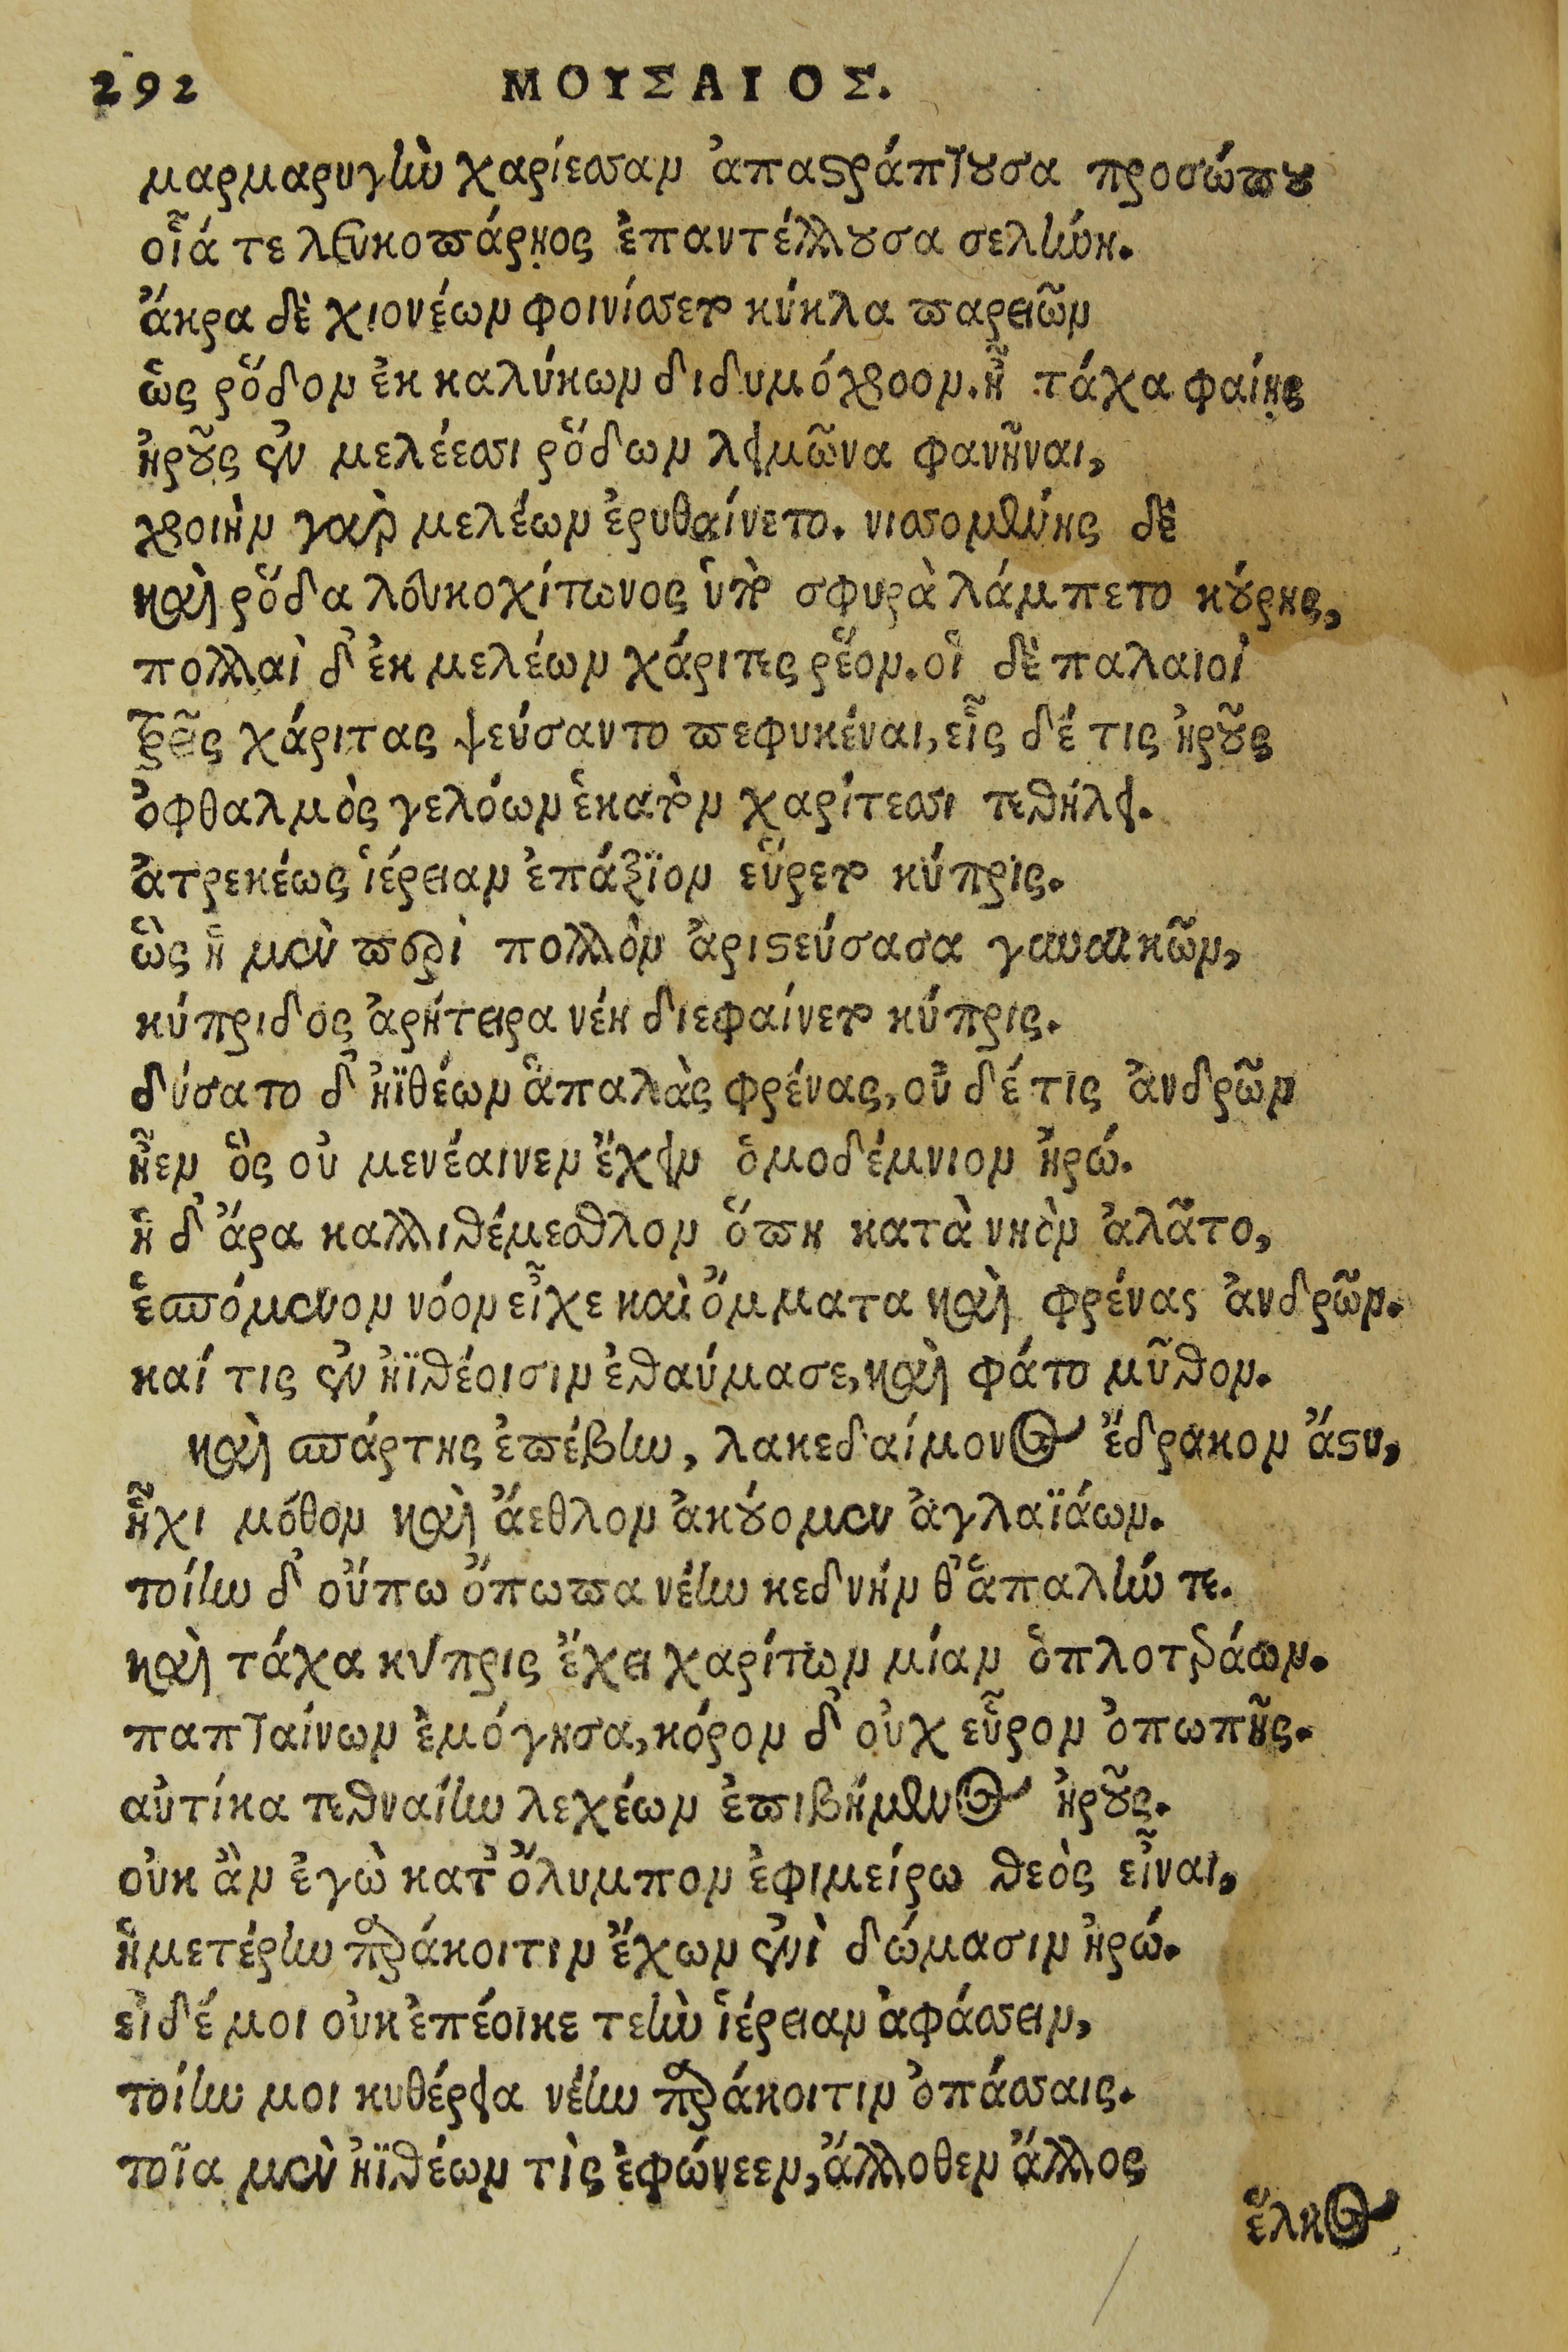 292 ΜΟΥΣΑΙΟΣ.
μαρμαρυγὴν χαρίεσσαν ἀπαστράπτουσα προσώπου
οἷά τε λευκοπάρῃος ἐπαντέλλουσα σελήνη.
ἄκρα δὲ χιονέων φοινίσσετο κύκλα παρειῶν
ὡς ῥόδον ἐκ καλύκων διδυμόχροον. ἦ τάχα φαίης
ἡροῦς ἐν μελέεσσι ῥόδων λειμῶνα φανῆναι,
χροιὴν γὰρ μελέων ἐρυθαίνετο. νισσομένης δὲ
καὶ ῥόδα λευκοχίτωνος ὑπὸ σφυρὰ λάμπετο κούρης,
πολλαὶ δ' ἐκ μελέων χάριτες ῥέον. οἱ δὲ παλαιοὶ
τρεῖς χάριτας ψεύσαντο πεφυκέναι, εἷς δέ τις ἡροῦς
ὀφθαλμὸς γελόων ἑκατὸν χαρίτεσσι τεθήλει.
ἀτρεκέως ἱέρειαν ἐπάξϊον εὕρετο κύπρις.
ὣς ἡ μὲν περὶ πολλὸν ἀριστεύσασα γυναικῶν,
κύπριδος ἀρήτειρα νέη διεφαίνετο κύπρις.
δύσατο δ' ἠϊθέων ἁπαλὰς φρένας, οὐ δέ τις ἀνδρῶν
ἦεν ὃς οὐ μενέαινεν ἔχειν ὁμοδέμνιον ἡρώ.
ἡ δ' ἄρα καλλιθέμεθλον ὅπη κατὰ νηὸν ἀλᾶτο,
ἑσπόμενον νόον εἶχε καὶ ὄμματα καὶ φρένας ἀνδρῶν.
καί τις ἐν ἠϊθέοισιν ἐθαύμασε, καὶ φάτο μῦθον.
καὶ σπάρτης ἐπέβην, λακεδαίμονος ἔδρακον ἄστυ,
ἧχι μόθον καὶ ἄεθλον ἀκούομεν ἀγλαϊάων.
τοίην δ' οὔπω ὄπωπα νέην κεδνήν θ' ἁπαλήν τε.
καὶ τάχα κύπρις ἔχει χαρίτων μίαν ὁπλοτεράων.
παπταίνων ἐμόγησα, κόρον δ' οὐχ εὗρον ὀπωπῆς.
αὐτίκα τεθναίην λεχέων ἐπιβήμενος ἡροῦς.
οὐκ ἂν ἐγὼ κατ' ὄλυμπον ἐφιμείρω θεὸς εἶναι,
ἡμετέρην παράκοιτιν ἔχων ἐνὶ δώμασιν ἡρώ.
εἰ δέ μοι οὐκ ἐπέοικε τεὴν ἱέρειαν ἀφάσσειν,
τοίην μοι κυθέρεια νέην παράκοιτιν ὀπάσσαις.
τοῖα μὲν ἠϊθέων τὶς ἐφώνεεν, ἄλλοθεν ἄλλος
ἕλκος